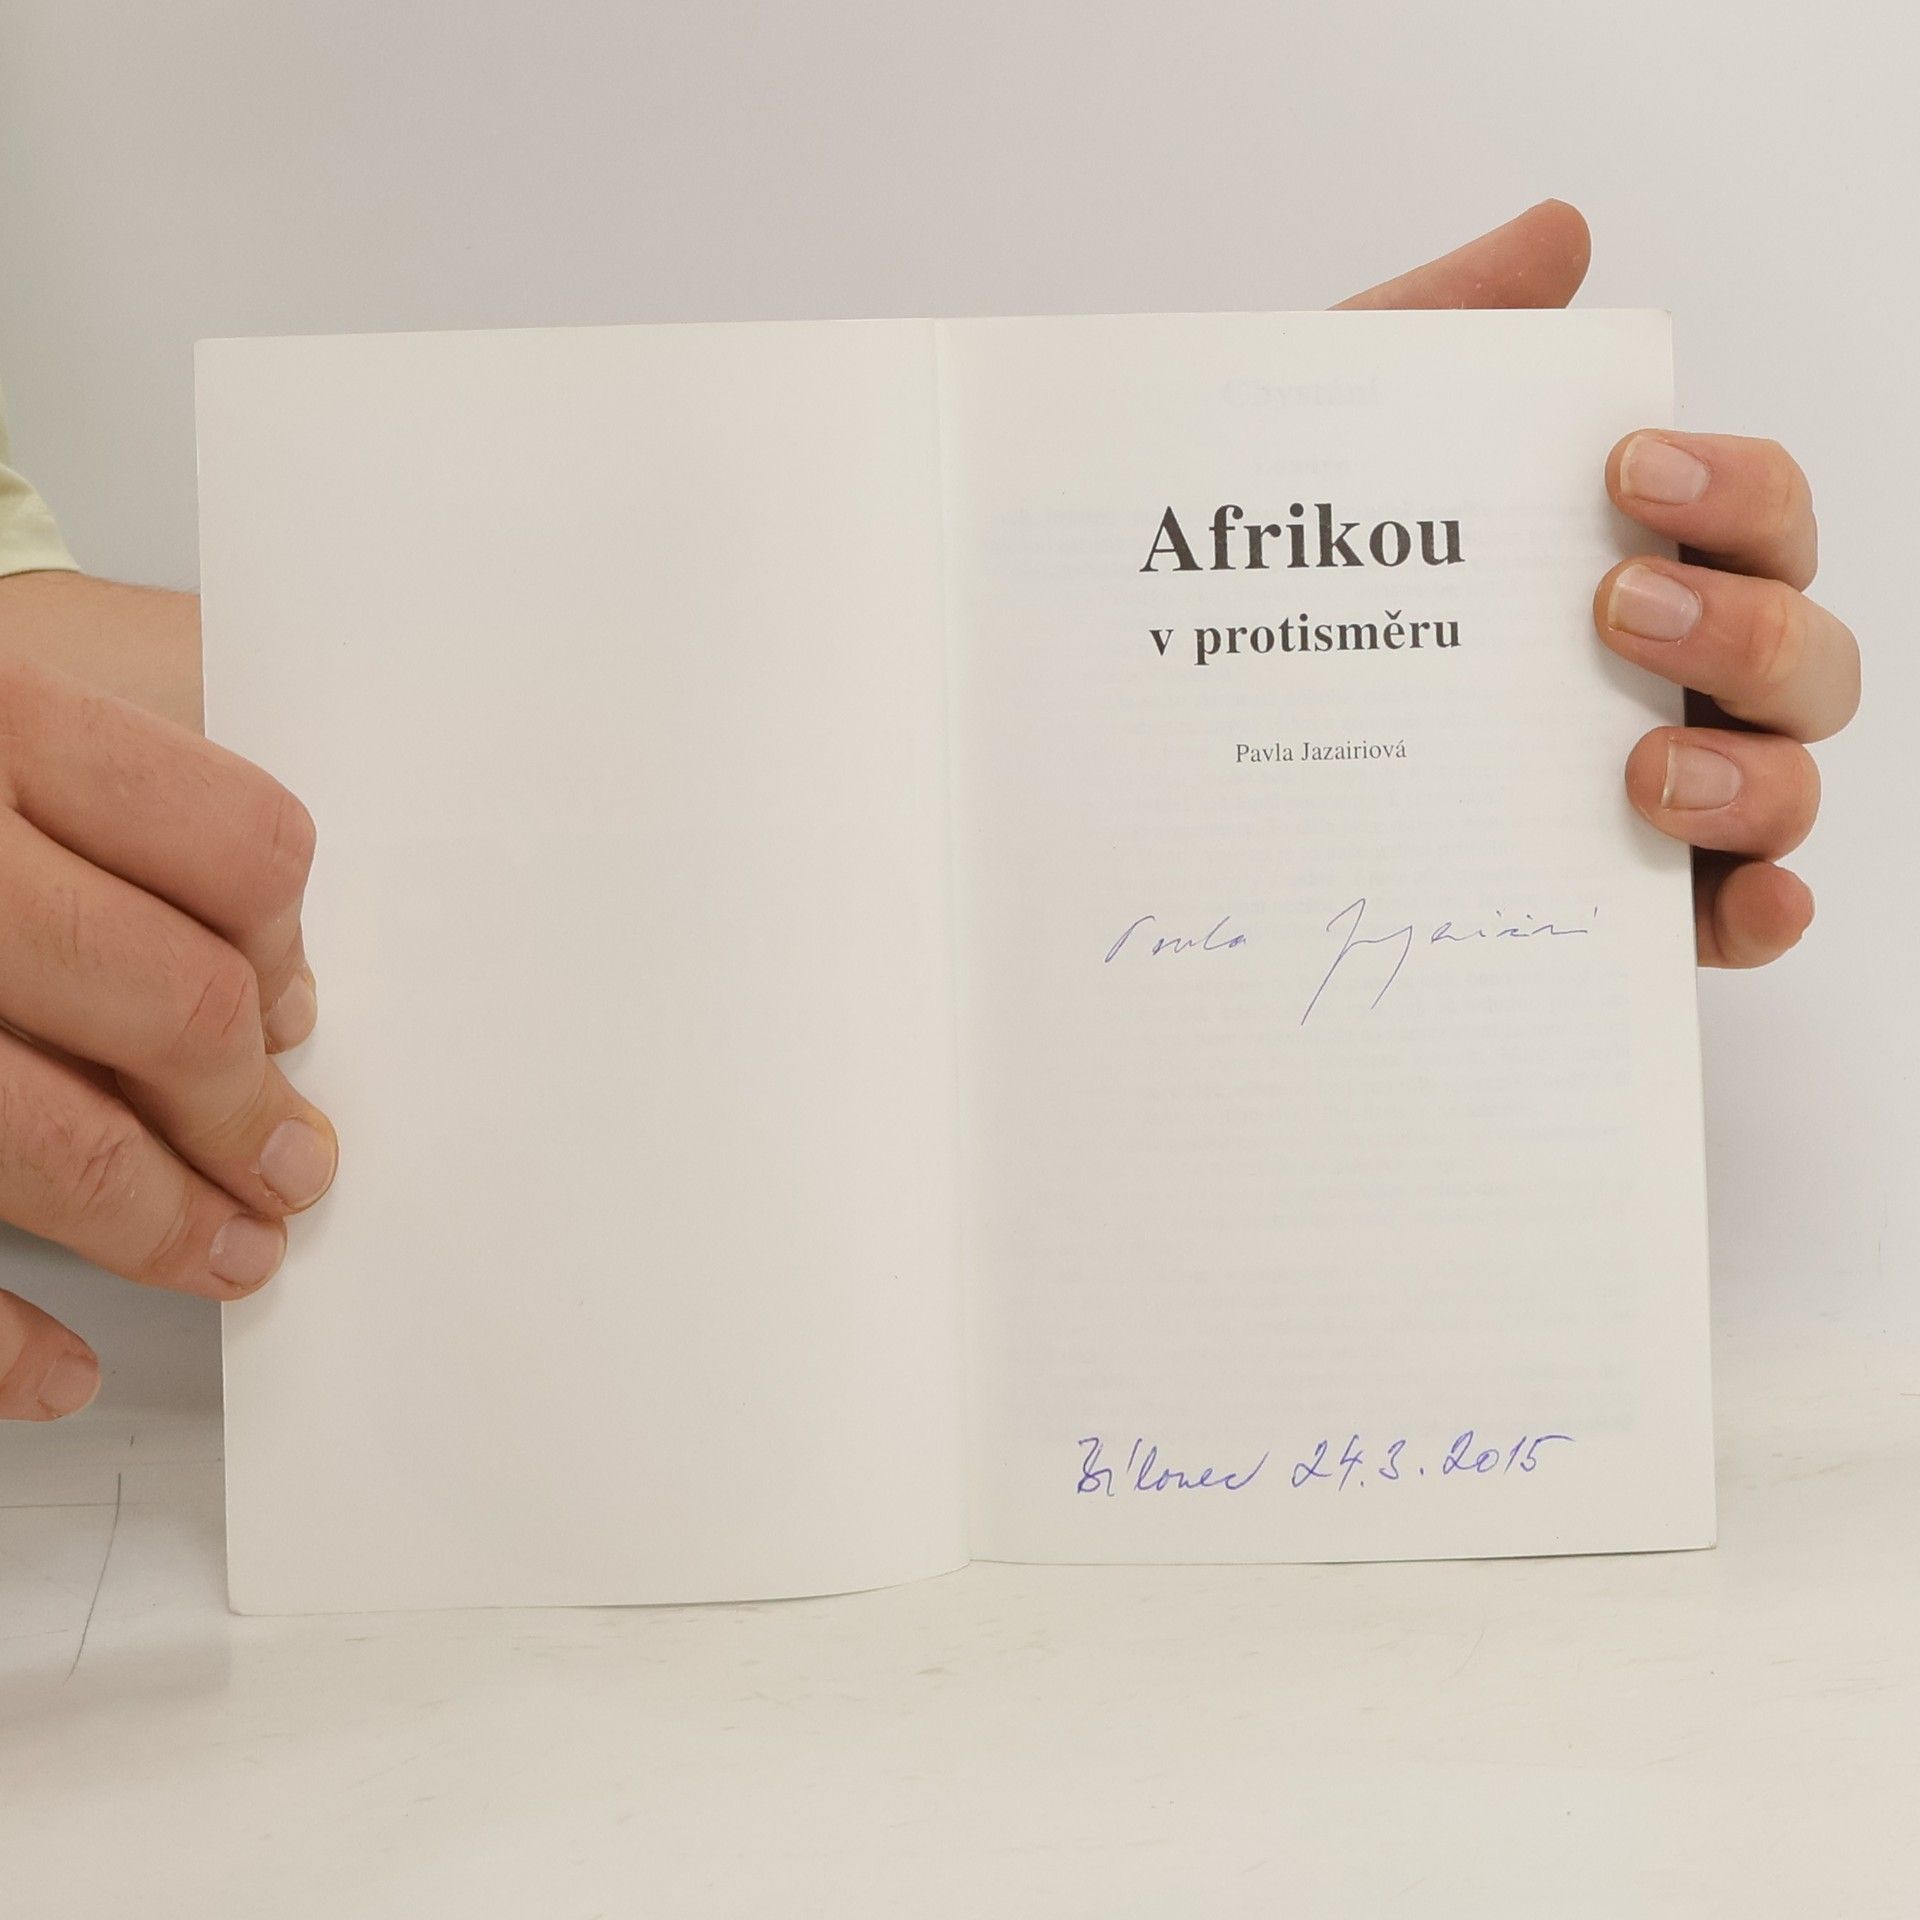 Afrikou
v protisměru
Pavla Jazairiová
Pavla Jazairiová
Bílovec 24.3.2015